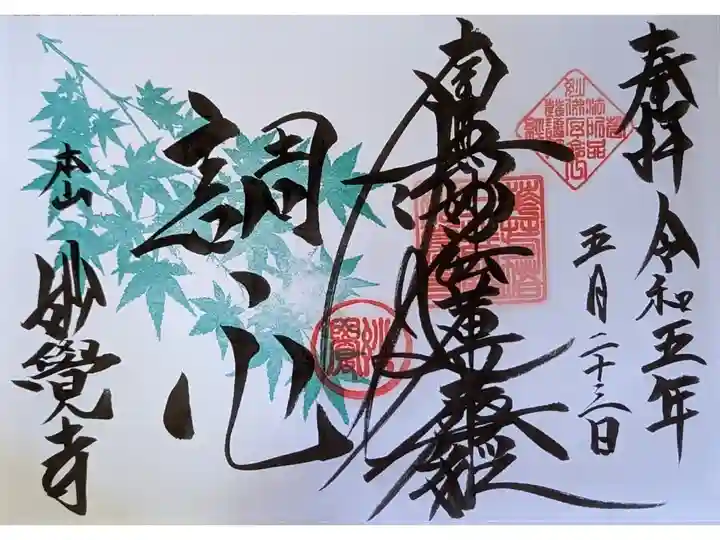 奉拝 令和五年
五月二十三日
南無妙法蓮華経
調心
本山 妙覺寺